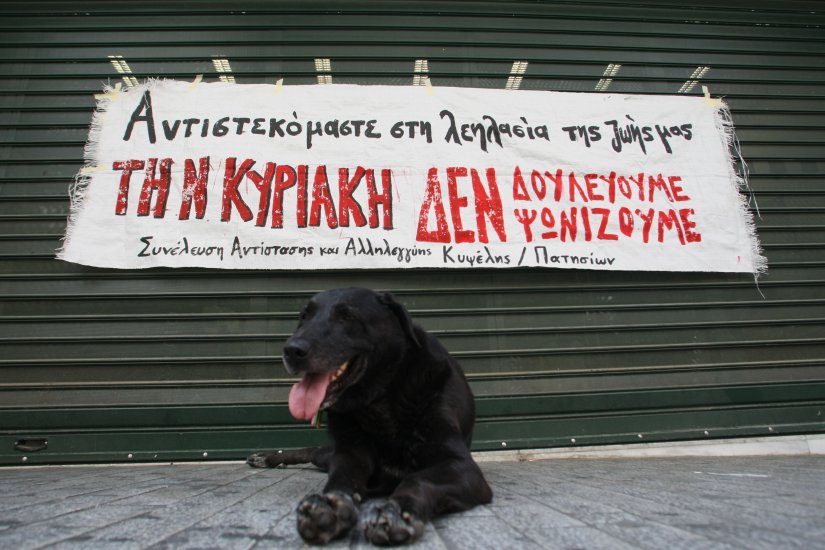 Αντιστεκόμαστε στη λεηλασία της ζωής μας
ΤΗΝ ΚΥΡΙΑΚΗ ΔΕΝ ΔΟΥΛΕΥΟΥΜΕ
ΨΩΝΙΖΟΥΜΕ
Συνέλευση Αντίστασης και Αλληλεγγύης Κυψέλης / Πατησίων